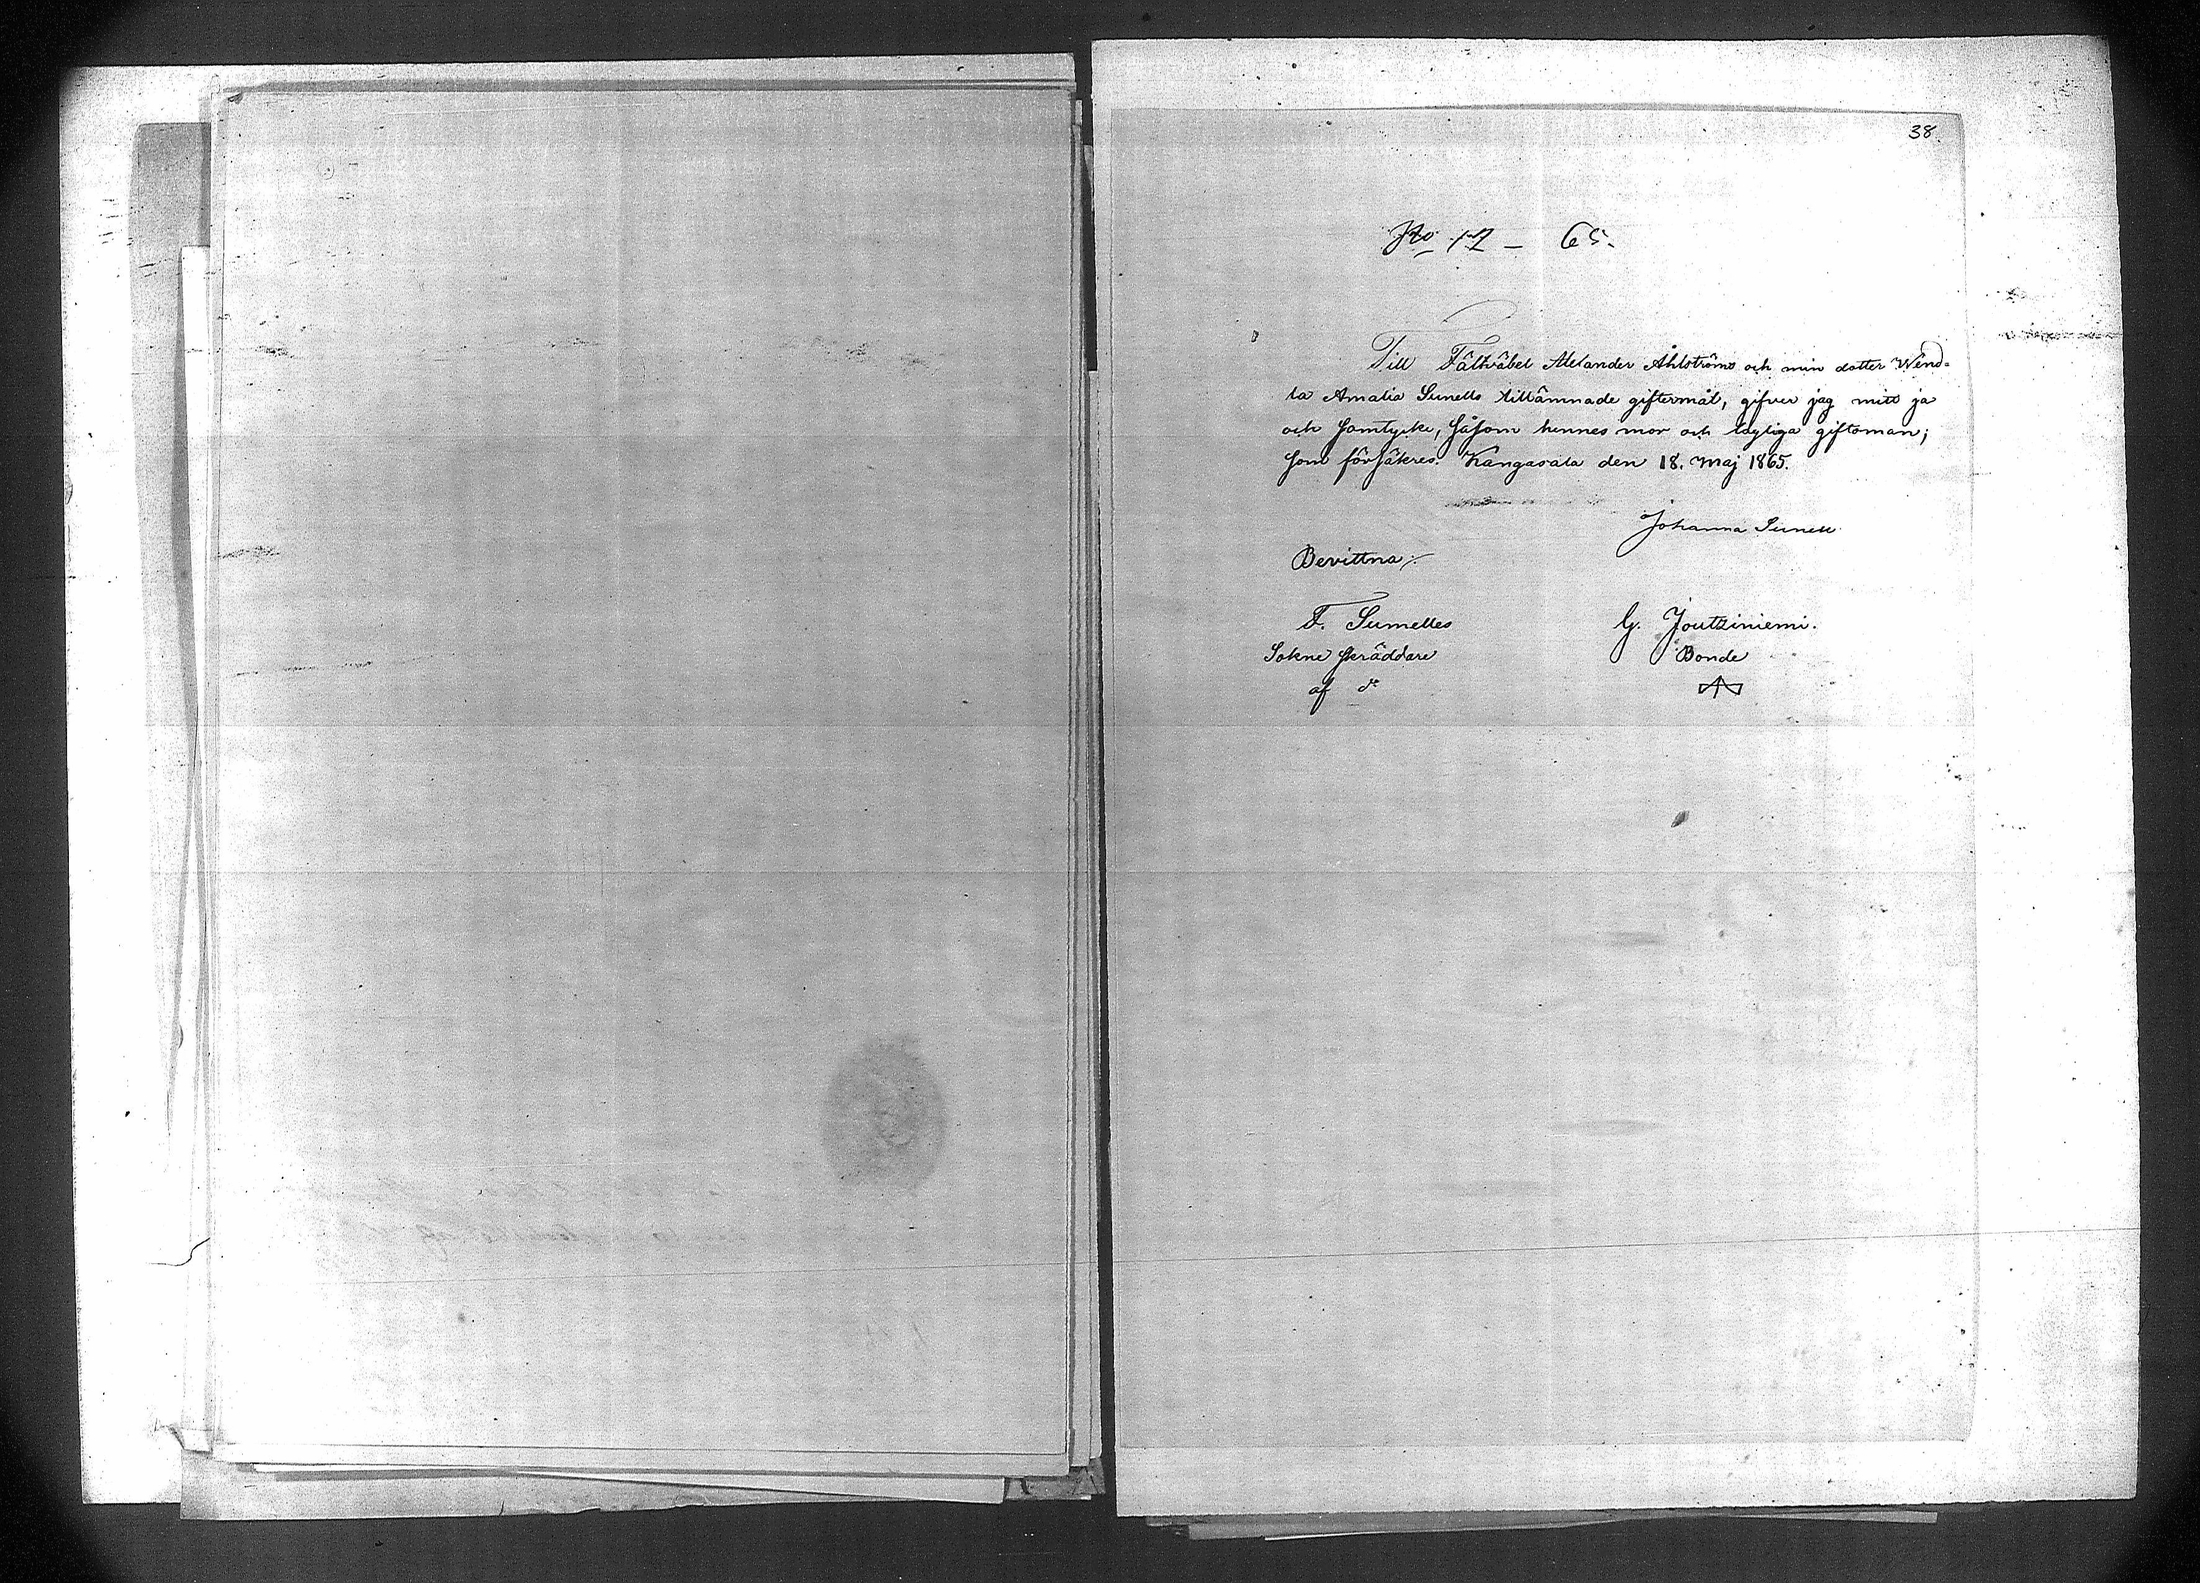 38.
No 12 – 65.
Till Fältväbel Alexander Åhlströms och min dotter Wend=
la Amalia Sunells tillämnade giftermål, gifver jag mitt ja
och samtycke, såsom hennes mor och lagliga giftoman;
som försäkres. Kangasala den 18. Maj 1865.
Johanna Sunell
Bevittna:
F. Sumelles
G. Joutziniemi.
Sokne skräddare
Bonde
af do